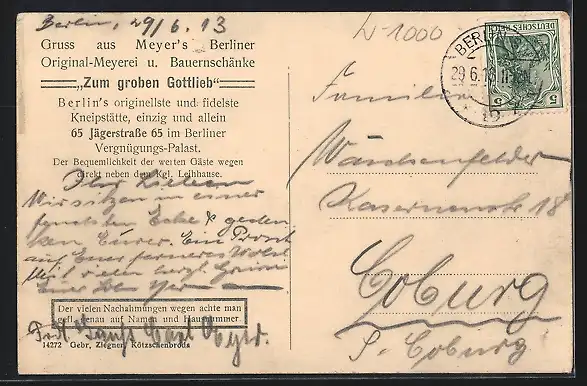 Berlin, 29/6.13
W-1000
Gruss aus Meyer's Berliner
Original-Meyerei u. Bauernschänke
„Zum groben Gottlieb“
Berlin's originellste und fidelste
Kneipstätte, einzig und allein
65 Jägerstraße 65 im Berliner
Vergnügungs-Palast.
Der Bequemlichkeit der werten Gäste wegen
direkt neben dem Kgl. Leihhause.
Ihr Lieben
Wir sitzen in einer
Ecke & geden
ken Eurer. Ein Prosit
auf Euer ferneres Wohl
Mit vielen herzl. Grüßen
Euer
Der vielen Nachahmungen wegen achte man
gefl. genau auf Namen und Hausnummer.
14272 Gebr. Ziegner, Kötzschenbroda
DEUTSCHES REICH
5 5
BERLIN
29.6.13
Familie
Kasernenstr 18
Coburg
S. Coburg